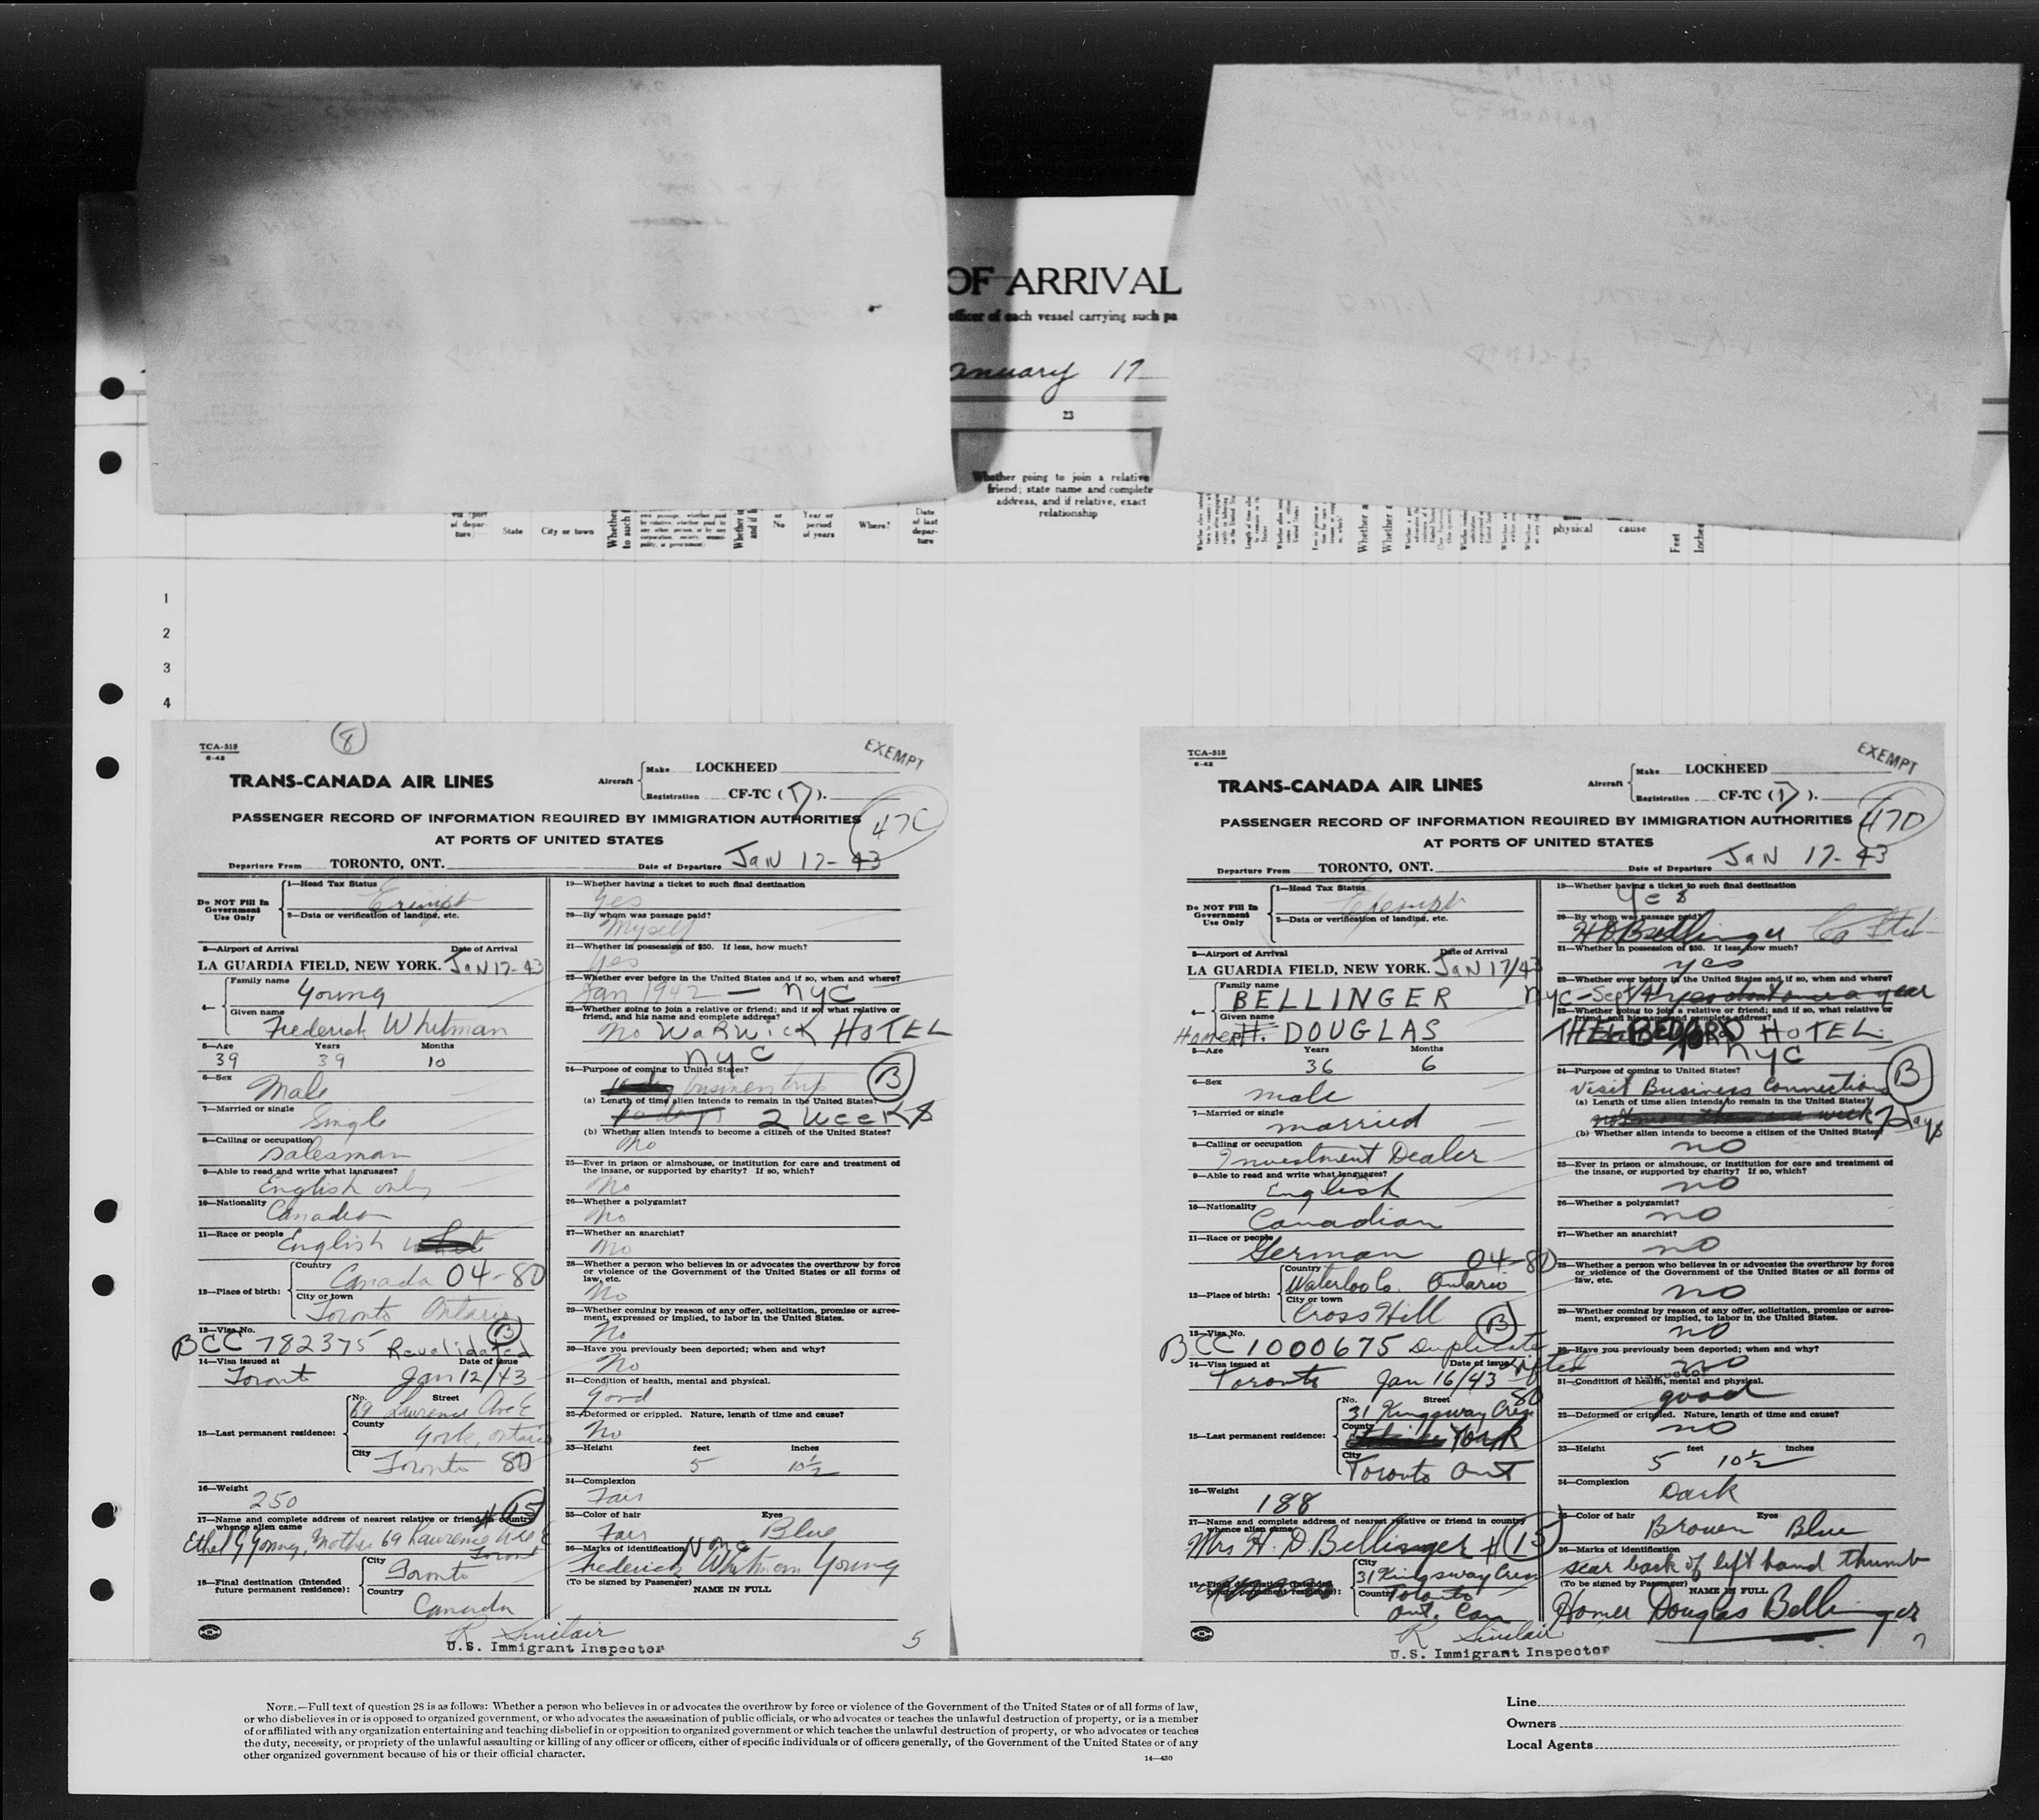 OF ARRIVAL
officer of each vessel carrying such pa
anuary 17
23
Whether going to join a relative
friend; state name and complete
address, and if relative, exact
relationship
State
City or town
No
Year or
period
of years
Where?
Date
of last
depar-
ture
physical
cause
Feet
Inches
1
2
3
4
8
TCA-518
6-42
EXEMPT
TRANS-CANADA AIR LINES
Aircraft
Make LOCKHEED
Registration CF-TC ( T ).
47C
PASSENGER RECORD OF INFORMATION REQUIRED BY IMMIGRATION AUTHORITIES
AT PORTS OF UNITED STATES
Departure From TORONTO, ONT. Date of Departure JAN 17-43
Do NOT Fill In
Government
Use Only
1—Head Tax Status
Exempt
2—Data or verification of landing, etc.
3—Airport of Arrival Date of Arrival
LA GUARDIA FIELD, NEW YORK. JAN 17-43
4—
Family name
Young
Given name
Frederick Whitman
5—Age Years Months
39 39 10
6—Sex
Male
7—Married or single
Single
8—Calling or occupation
Salesman
9—Able to read and write what languages?
English only
10—Nationality
Canadian
11—Race or people English
12—Place of birth:
Country
Canada 04-80
City or town
Toronto Ontario
13—Visa No. B
BCC 782375 Revalidated
14—Visa issued at Date of issue
Toronto Jan 12/43
15—Last permanent residence:
No. Street
69 Lawrence Ave E
County
York, Ontario
City
Toronto 80
16—Weight
250
17—Name and complete address of nearest relative or friend in country
whence alien came # 15
Ethel G Young, Mother 69 Lawrence Ave E
Toront
18—Final destination (Intended
future permanent residence):
City
Toronto
Country
Canada
19—Whether having a ticket to such final destination
Yes
20—By whom was passage paid?
Myself
21—Whether in possession of $50. If less, how much?
Yes
22—Whether ever before in the United States and if so, when and where?
Jan 1942 — NYC
23—Whether going to join a relative or friend; and if so, what relative or
friend, and his name and complete address?
No WARWICK HOTEL
NYC
24—Purpose of coming to United States?
business trip B
(a) Length of time alien intends to remain in the United States?
2 WEEKS
(b) Whether alien intends to become a citizen of the United States?
No
25—Ever in prison or almshouse, or institution for care and treatment of
the insane, or supported by charity? If so, which?
No
26—Whether a polygamist?
No
27—Whether an anarchist?
No
28—Whether a person who believes in or advocates the overthrow by force
or violence of the Government of the United States or all forms of
law, etc.
No
29—Whether coming by reason of any offer, solicitation, promise or agree-
ment, expressed or implied, to labor in the United States.
No
30—Have you previously been deported; when and why?
No
31—Condition of health, mental and physical.
Good
32—Deformed or crippled. Nature, length of time and cause?
No
33—Height feet inches
5 10½
34—Complexion
Fair
35—Color of hair Eyes
Fair Blue
36—Marks of identification None
Frederick Whitman Young
(To be signed by Passenger) NAME IN FULL
R Sinclair
U.S. Immigrant Inspector
5
TCA-518
6-42
EXEMPT
TRANS-CANADA AIR LINES
Aircraft
Make LOCKHEED
Registration CF-TC ( T ).
47D
PASSENGER RECORD OF INFORMATION REQUIRED BY IMMIGRATION AUTHORITIES
AT PORTS OF UNITED STATES
Departure From TORONTO, ONT. Date of Departure JAN 17-43
Do NOT Fill In
Government
Use Only
1—Head Tax Status
Exempt
2—Data or verification of landing, etc.
3—Airport of Arrival Date of Arrival
LA GUARDIA FIELD, NEW YORK. JAN 17/43
4—
Family name
BELLINGER
Given name
Homer H. DOUGLAS
5—Age Years Months
36 6
6—Sex
male
7—Married or single
married
8—Calling or occupation
Investment Dealer
9—Able to read and write what languages?
English
10—Nationality
Canadian
11—Race or people
German 04-80
12—Place of birth:
Country
Waterloo Co. Ontario
City or town
Cross Hill
13—Visa No. B
BCC 1000675 Duplicate
14—Visa issued at Date of issue
Toronto Jan 16/43
15—Last permanent residence:
No. Street 80
31 Kingsway Cres
County
YORK
City
Toronto Ont
16—Weight
188
17—Name and complete address of nearest relative or friend in country
whence alien came
Mrs H. D Bellinger # 15
18—Final destination (Intended
future permanent residence):
City
31 Kingsway Cres
Country Toronto
Ont. Can
19—Whether having a ticket to such final destination
Yes
20—By whom was passage paid?
HDBellinger Co Ltd
21—Whether in possession of $50. If less, how much?
yes
22—Whether ever before in the United States and, if so, when and where?
NYC-Sept 41 yes about once a year
23—Whether going to join a relative or friend; and if so, what relative or
friend, and his name and complete address?
THE BEDFORD HOTEL
NYC
24—Purpose of coming to United States?
Visit Business Connections B
(a) Length of time alien intends to remain in the United States?
not more than one week 7 days
(b) Whether alien intends to become a citizen of the United States?
no
25—Ever in prison or almshouse, or institution for care and treatment of
the insane, or supported by charity? If so, which?
no
26—Whether a polygamist?
no
27—Whether an anarchist?
no
28—Whether a person who believes in or advocates the overthrow by force
or violence of the Government of the United States or all forms of
law, etc.
no
29—Whether coming by reason of any offer, solicitation, promise or agree-
ment, expressed or implied, to labor in the United States.
no
30—Have you previously been deported; when and why?
no
31—Condition of health, mental and physical.
good
32—Deformed or crippled. Nature, length of time and cause?
no
33—Height feet inches
5 10½
34—Complexion
Dark
35—Color of hair Eyes
Brown Blue
36—Marks of identification
scar back of left hand thumb
(To be signed by Passenger) NAME IN FULL
Homer Douglas Bellinger
R Sinclair
U.S. Immigrant Inspector
7
NOTE.—Full text of question 28 is as follows: Whether a person who believes in or advocates the overthrow by force or violence of the Government of the United States or of all forms of law,
or who disbelieves in or is opposed to organized government, or who advocates the assassination of public officials, or who advocates or teaches the unlawful destruction of property, or is a member
of or affiliated with any organization entertaining and teaching disbelief in or opposition to organized government or which teaches the unlawful destruction of property, or who advocates or teaches
the duty, necessity, or propriety of the unlawful assaulting or killing of any officer or officers, either of specific individuals or of officers generally, of the Government of the United States or of any
other organized government because of his or their official character.
14—430
Line
Owners
Local Agents